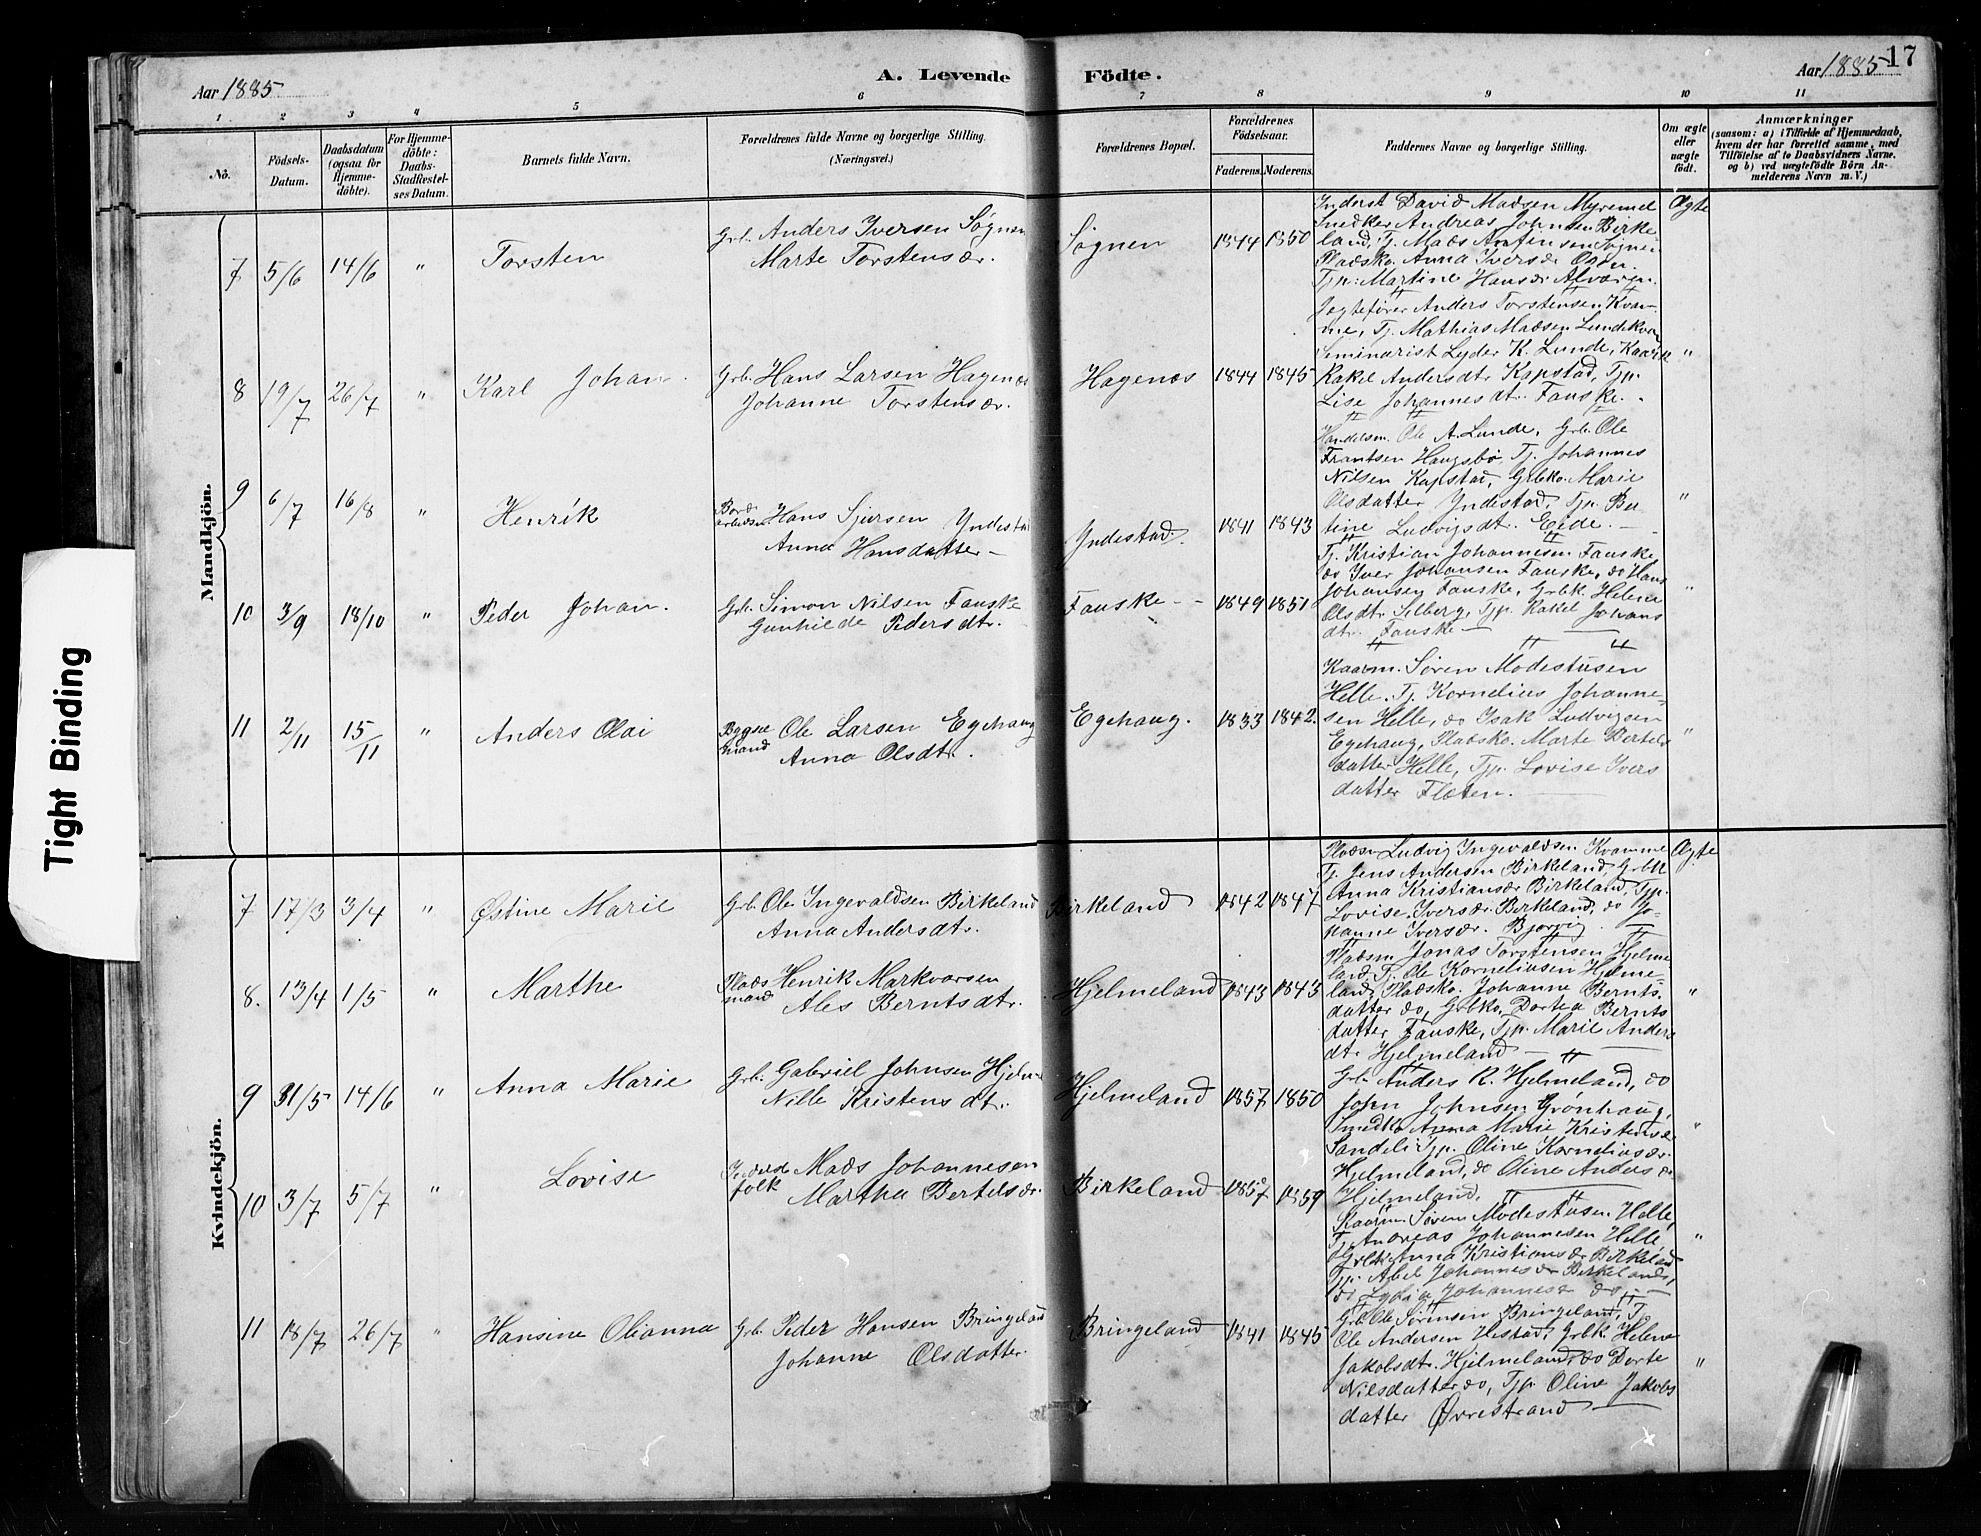 17
A. Levende Födte.
Aar 1885
Aar 1885
1 2 3 4 5 6 7 8 9 10 11
No.
Födsels-
Datum.
Daabsdatum
(ogsaa for
Hjemme-
döbte).
For Hjemme-
döbte:
Daabs-
Stadfestel-
ses Datum.
Barnets fulde Navn.
Forældrenes fulde Navne og borgerlige Stilling.
(Næringsvei.)
Forældrenes Bopæl.
Forældrenes
Födselsaar.
Faderens. Moderens.
Faddernes Navne og borgerlige Stilling.
Om ægte
eller
uægte
födt.
Anmærkninger
(saasom: a) i Tilfælde af Hjemmedaab,
hvem der har forrettet samme, med
Tilföielse af to Daabsvidners Navne.
og b) ved uægtefödte Börn An-
melderens Navn m. V.)
Mandkjön.
7 5/6 14/6 " Torsten
Grb. Anders Iversen Søgnen
Marte Torstensdr.
Søgnen 1844 1850
Inderst David Madsen Myremel
Snedker Andreas Johnsen Birke
land, Tj. Mads Antensen Søgnen
Pladsko. Anna Iversdr Osen.
Tjp. Martine Hansdr Alværen.
Ægte
8 19/7 26/7 " Karl Johan.
Grb. Hans Larsen Hagenæs
Johanne Torstensdr.
Hagenæs 1844 1845
Jegtefører Anders Torstensen Kvam-
me, Tj. Mathias Madsen Lundekvam
Seminarist Lyder K. Lunde, Kaark
Rakel Andersdt. Kapstad, Tjp.
Lise Johannesdt. Fauske.
"
9 6/7 16/8 " Henrik
Bordarbeider Hans Sjursen Yndestad
Anna Hansdatter
Yndestad. 1841 1843
Handelsm. Ole A. Lunde, Grb. Ole
Frantsen Haugsbø Tj. Johannes
Nilsen Kapstad, Grbko. Marie
Olsdatter Yndestad, Tjp. Ber-
tine Ludvigsdt. Eide.
"
10 3/9 18/10 " Peder Johan.
Grb. Simon Nilsen Fauske
Gunhilde Pedersdtr.
Fauske 1849 1851
Tj. Kristian Johannesen Fauske,
do Iver Johansen Fauske, do Hans
Johansen Fauske, Grbk. Helene
Olsdt. Selberg, Tjp. Rakel Johans
dt. Fauske
"
11 2/11 15/11 " Anders Olai
Bygselmand Ole Larsen Egehaug
Anna Olsdt.
Egehaug. 1833 1842.
Kaarm. Søren Modestusen
Helle. Tj. Kornelius Johanne-
sen Helle, do Isak Ludvigsen
Egehaug, Pladsko. Marte Bertels
datter Helle, Tjp. Lovise Ivers
datter Fløten.
"
Kvindekjön.
7 17/3 3/4 " Østine Marie
Grb. Ole Ingevaldsen Birkeland
Anna Andersdt.
Birkeland 1842 1847
Pladsm Ludvig Ingevaldsen Kvamme
Tj. Jens Andersen Birkeland, Grbk
Anna Kristiansdr Birkeland, Tjp.
Lovise Iversdr Birkeland, do Jo-
hanne Iversdr. Bjørvig
Ægte
8. 13/4 1/5 " Marthe
Pladsmand Henrik Markvarsen
Ales Berntsdtr.
Hjelmeland 1843 1843
Pladsm Jonas Torstensen Hjelme-
land, Tj. Ole Korneliusen Hjelme-
land, Pladsko. Johanne Bernts-
datter do, Grbko, Dortea Bernts
datter Fauske, Tjp. Marie Anders
dt. Hjelmeland
"
9 31/5 14/6 " Anna Marie
Grb. Gabriel Johnsen Hjelm-
Nille Kristensdt.
Hjelmeland 1857 1850
Grb. Anders R. Hjelmeland, do
John Johnsen Grønhaug,
Smedko Anna Marie Kristensdr
Sandeli Tjp. Oline Korneliusdr
Hjelmeland, do Oline Andersdr
Hjelmeland.
"
10 3/7 5/7 " Lovise
Inderstfolk Mads Johannesen
Martha Bertelsdr.
Birkeland 1857 1859
Kaarm. Søren Modestusen Helle,
Tj. Andreas Johannesen Helle
Grbk Anna Kristiansdr Birkeland
Tjp. Abel Johannesdr Birkeland,
do Lydia Johannesdr do
"
11 18/7 26/7 " Hansine Olianna
Grb. Peder Hansen Bringeland
Johanne Olsdatter
Bringeland 1841 1845
Grb Ole Sørensen Bringeland, Tj.
Ole Andersen Hestad, Grbk. Helene
Jakobsdt. Hjelmeland, do Dorte
Nilsdatter do, Tjp. Oline Jakobs
datter Øvrestrand
"
Tight Binding